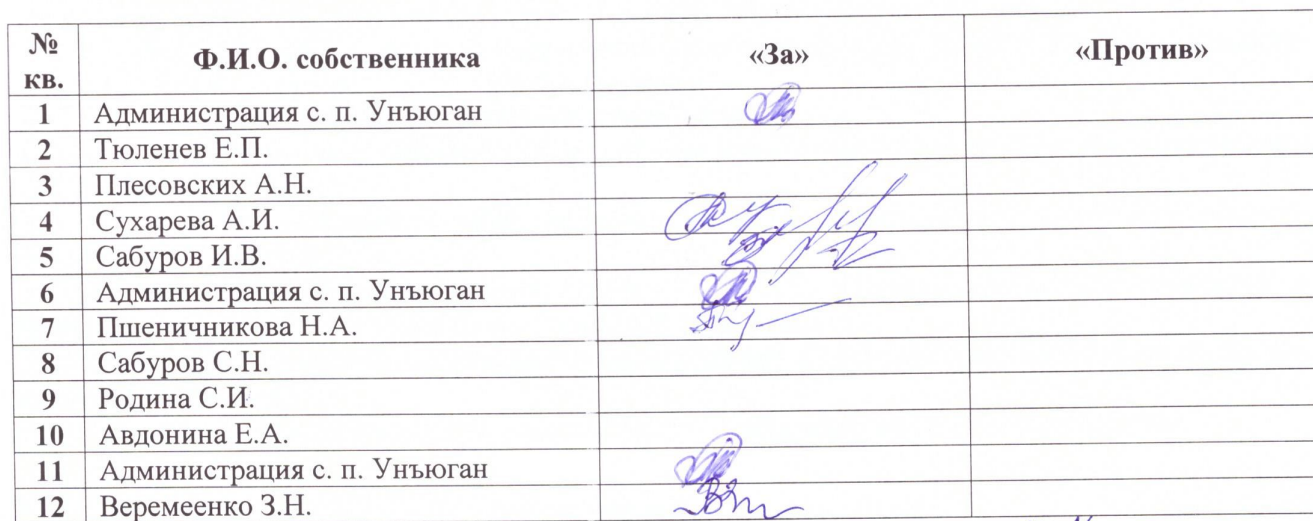 № кв. Ф.И.О. собственника «За» «Против»
1 Администрация с. п. Унъюган
2 Тюленев Е.П.
3 Плесовских А.Н.
4 Сухарева А.И.
5 Сабуров И.В.
6 Администрация с. п. Унъюган
7 Пшеничникова Н.А.
8 Сабуров С.Н.
9 Родина С.И.
10 Авдонина Е.А.
11 Администрация с. п. Унъюган
12 Веремеенко З.Н.